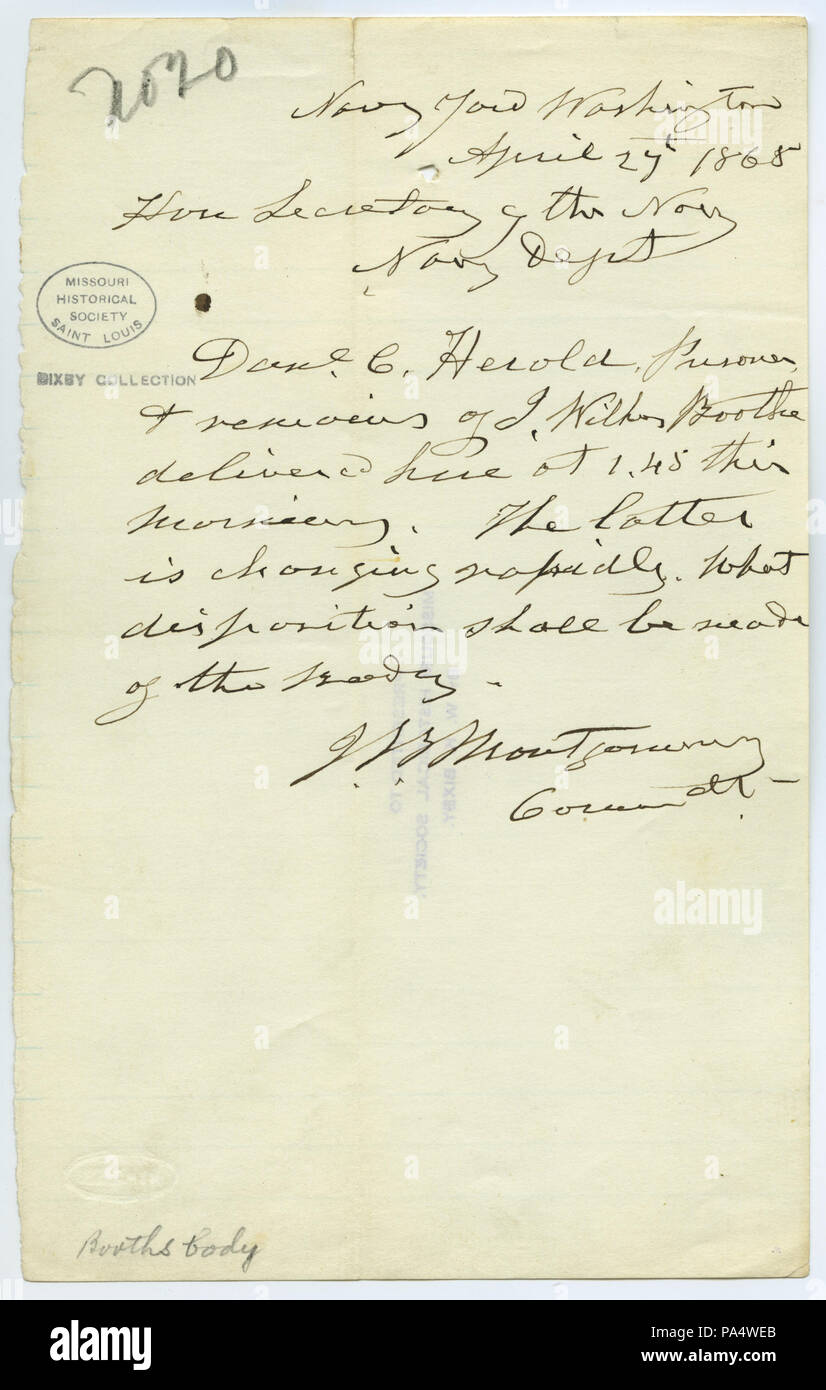 2020
Navy Yard Washington
April 27 1865
Hon Secretary of the Navy
Navy Dept
MISSOURI
HISTORICAL
SOCIETY
SAINT LOUIS
BIXBY COLLECTION
Danl. C. Herold, Prisoner,
& remains of J. Wilkes Boothe
delivered here at 1.45 this
morning. The latter
is changing rapidly. What
disposition shall be made
of the Body.
J B Montgomery
Comdt.
Booths body
alamy
alamy
alamy
alamy
Image ID: PA4WEB
www.alamy.com